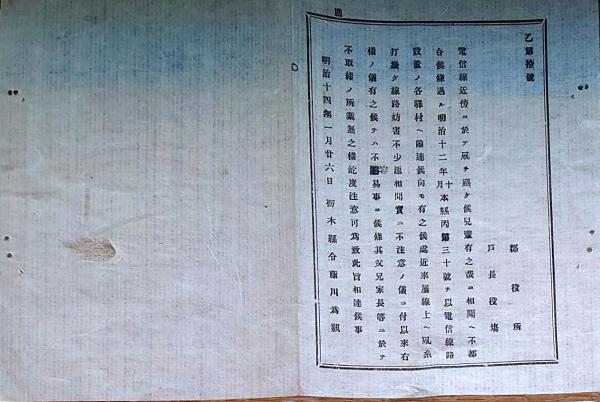 乙第拾號
郡役所
戸長役塲
電信線近傍ニ於テ凧ヲ颺ケ候兒輩有之哉ニ相聞ヘ不都
合候條過ル明治十二年十月本縣丙第三十號ヲ以電信線路
設置ノ各驛村ヘ諭達候向モ有之候處近來屡線上ヘ凧糸
打掛ケ線路妨害不少趣相聞實ニ不注意ノ儀ニ付以來右
樣ノ儀有之候テハ不容易事ニ候條其父兄家長等ニ於テ
不取締ノ所業無之樣屹度注意可爲致此旨相達候事
明治十四年一月廿六日 栃木縣令藤川爲親